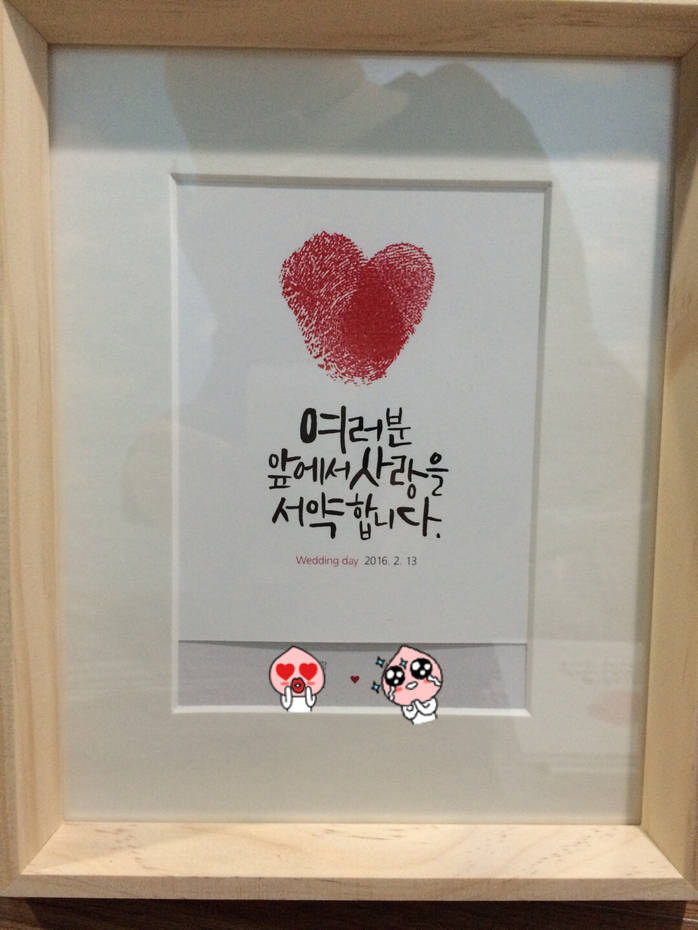 여러분
앞에서 사랑을
서약합니다.
Wedding day 2016. 2. 13